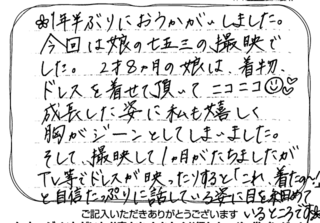 ※1年半ぶりにおうかがいしました。
今回は娘の七五三の撮映で
した。2才8ヶ月の娘は、着物、
ドレスを着せて頂いてニコニコ
成長した姿に私も嬉しく
胸がジーンとしてしまいました。
そして、撮映して1ヶ月がたちましたが
TV等でドレスが映ったりすると「これ、着たの〜!」
と自信たっぷりに話している姿に目を細めて
ご記入いただきありがとうございます いるところです